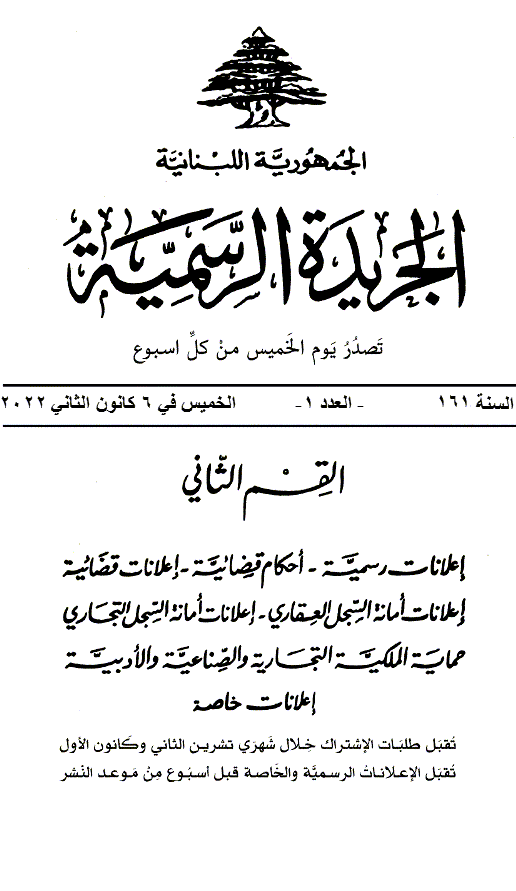 الجمهورية اللبنانية
الجريدة الرسمية
تَصدُرُ يَوم الخَميس منْ كلِّ اسبوع
السنة ١٦١ - العدد ١ - الخميس في ٦ كانون الثاني ٢٠٢٢
القِسْم الثّاني
إعلانات رسميَّة - أحكام قضائيَّة - إعلانات قضائية
إعلانات أمانة السِّجل العقاري - إعلانات أمانة السِّجل التجاري
حماية الملكيَّة التجارية والصِّناعيَّة والأدبيَّة
إعلانات خاصة
تُقبَل طلبَات الإشتراك خِلال شَهرَي تشرين الثاني وكَانون الأول
تُقبَل الإعلاناتُ الرسميَّة والخَاصة قبل أسبُوع مِنْ مَوعد النَشر